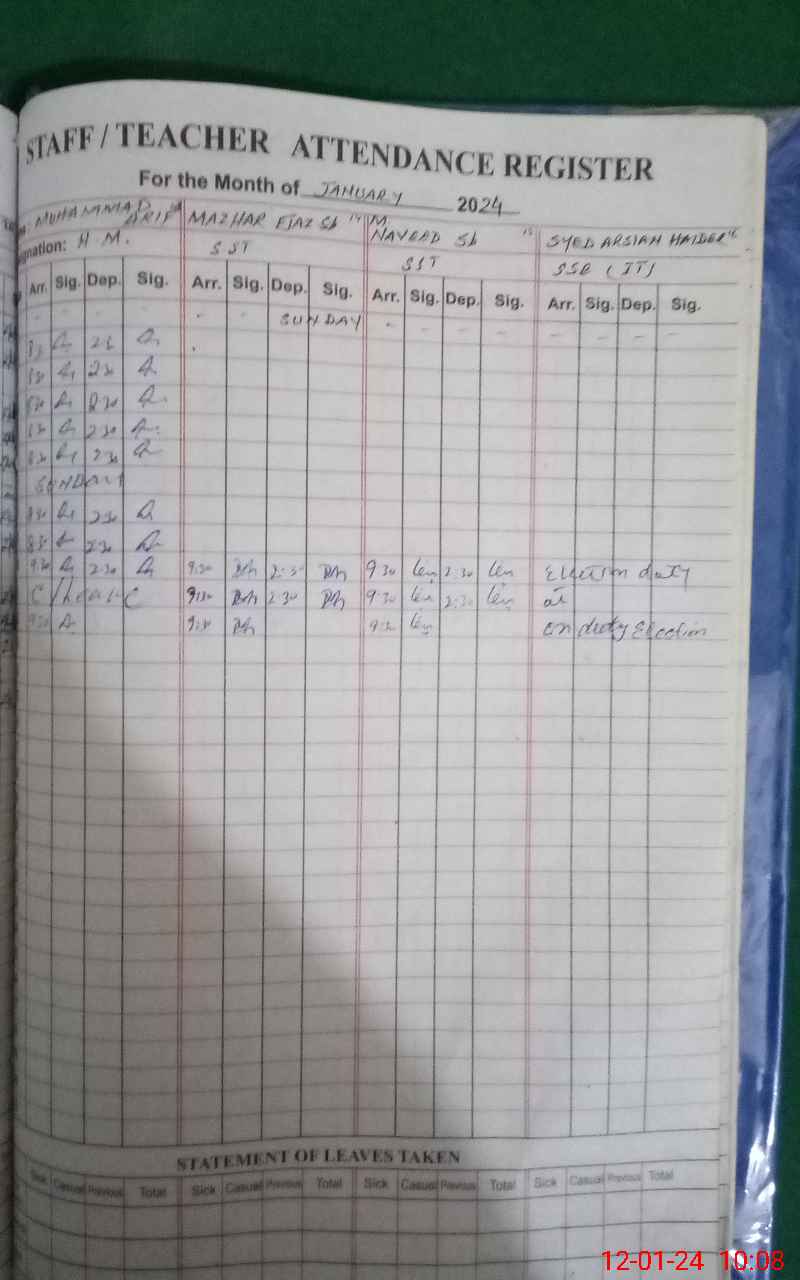 STAFF / TEACHER ATTENDANCE REGISTER
For the Month of JANUARY 2024
MUHAMMAD ARIF MAZHAR EJAZ Sb 14 M. NAVEED Sb 15 SYED ARSLAN HAIDER 16
gnation: H M. SST SST SSE (IT)
Arr. Sig. Dep. Sig. Arr. Sig. Dep. Sig. Arr. Sig. Dep. Sig. Arr. Sig. Dep. Sig.
- - - - SUNDAY - - - - - - -
2:30
8:30 2:30
8:30 2:30
8:30 2:30
8:30 2:30
SUNDAY
8:30 2:30
8:30 2:30
9:30 2:30 9:30 2:30 9:30 2:30 Election duty
C/Leave 9:30 2:30 9:30 2:30 at
9:30 9:30 9:30 on duty Election
STATEMENT OF LEAVES TAKEN
Sick Casual Previous Total Sick Casual Previous Total Sick Casual Previous Total Sick Casual Previous Total
12-01-24 10:08